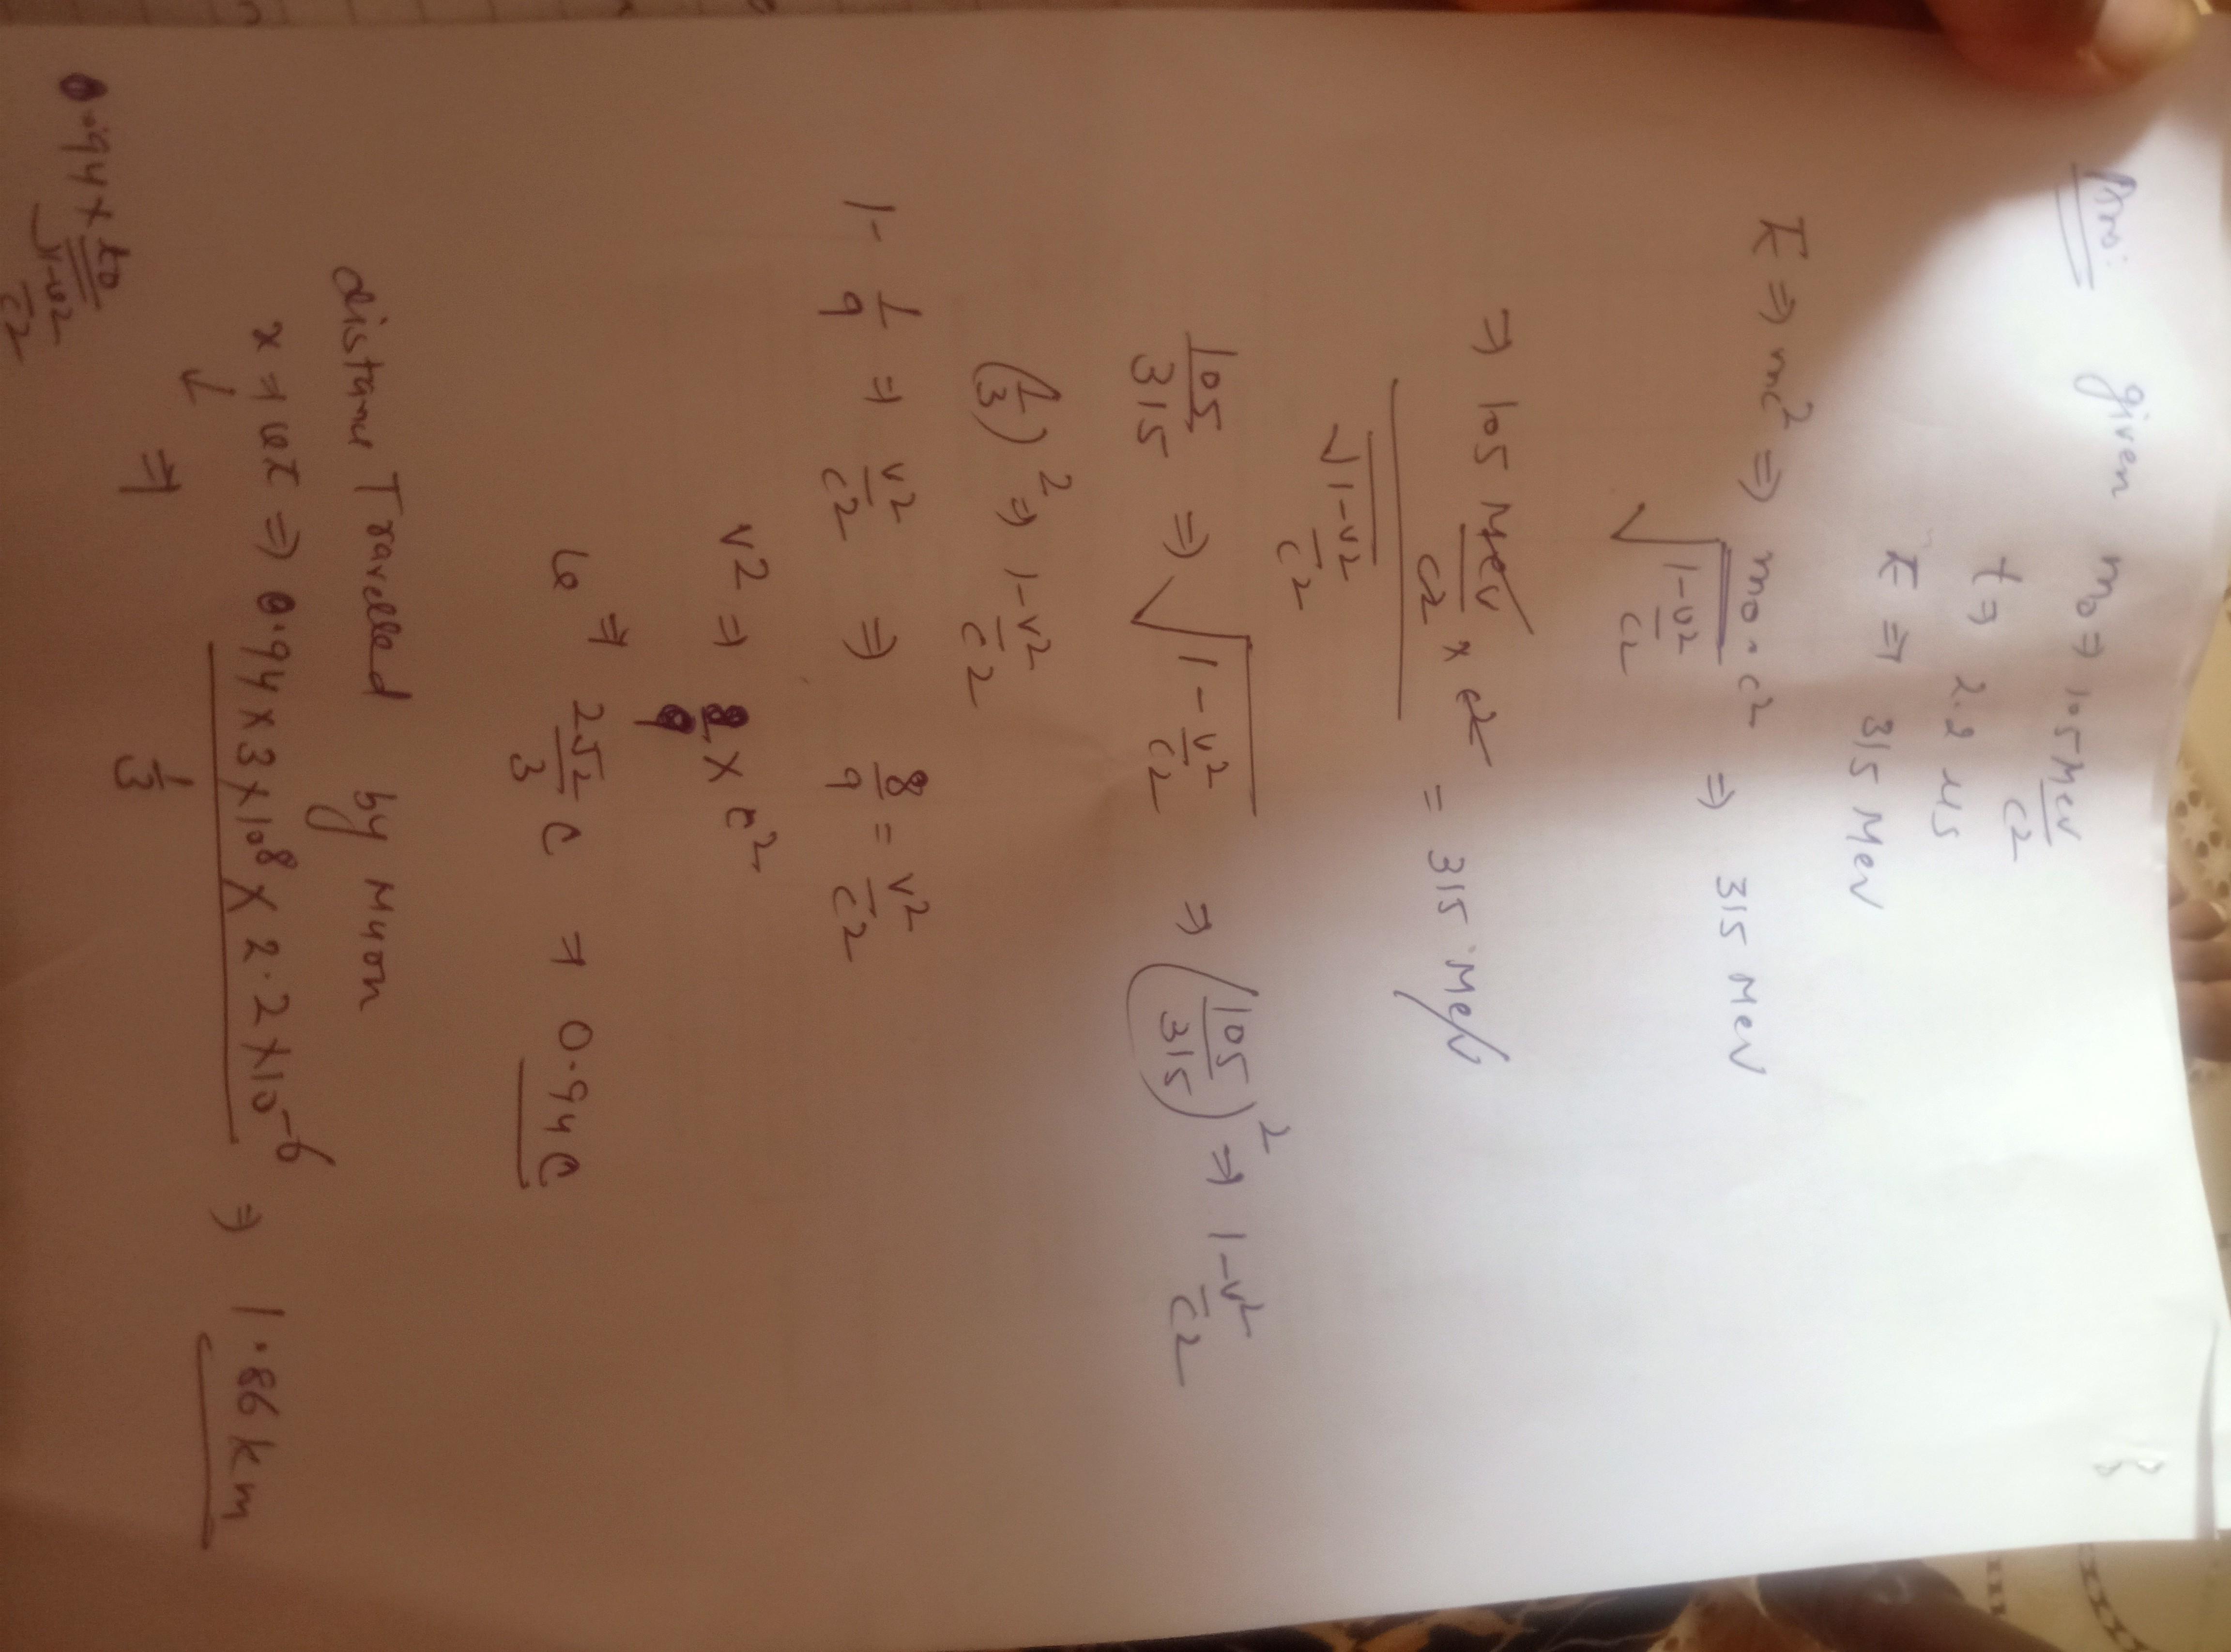 Ans: given m₀ ⇒ 105 Mev/c2
t ⇒ 2.2 μs
E ⇒ 315 Mev
E ⇒ mc² ⇒ m₀·c²/√(1-v2/c2) ⇒ 315 Mev
⇒ 105 Mev/c2 × c²/√(1-v2/c2) = 315 Mev
105/315 ⇒ √(1-v²/c2) ⇒ (105/315)² ⇒ 1-v²/c2
(1/3)² ⇒ 1-v²/c2
1-1/9 ⇒ v²/c2 ⇒ 8/9 = v²/c2
v2 ⇒ 8/9 × c²
v ⇒ 2√2/3 c ⇒ 0.94c
distance Travelled by Muon
x ⇒ vt ⇒ 0.94×3×10⁸×2.2×10⁻⁶ ⇒ 1.86 km
↓ ⇒ 1/3
0.94× t₀/√(1-v2/c2)